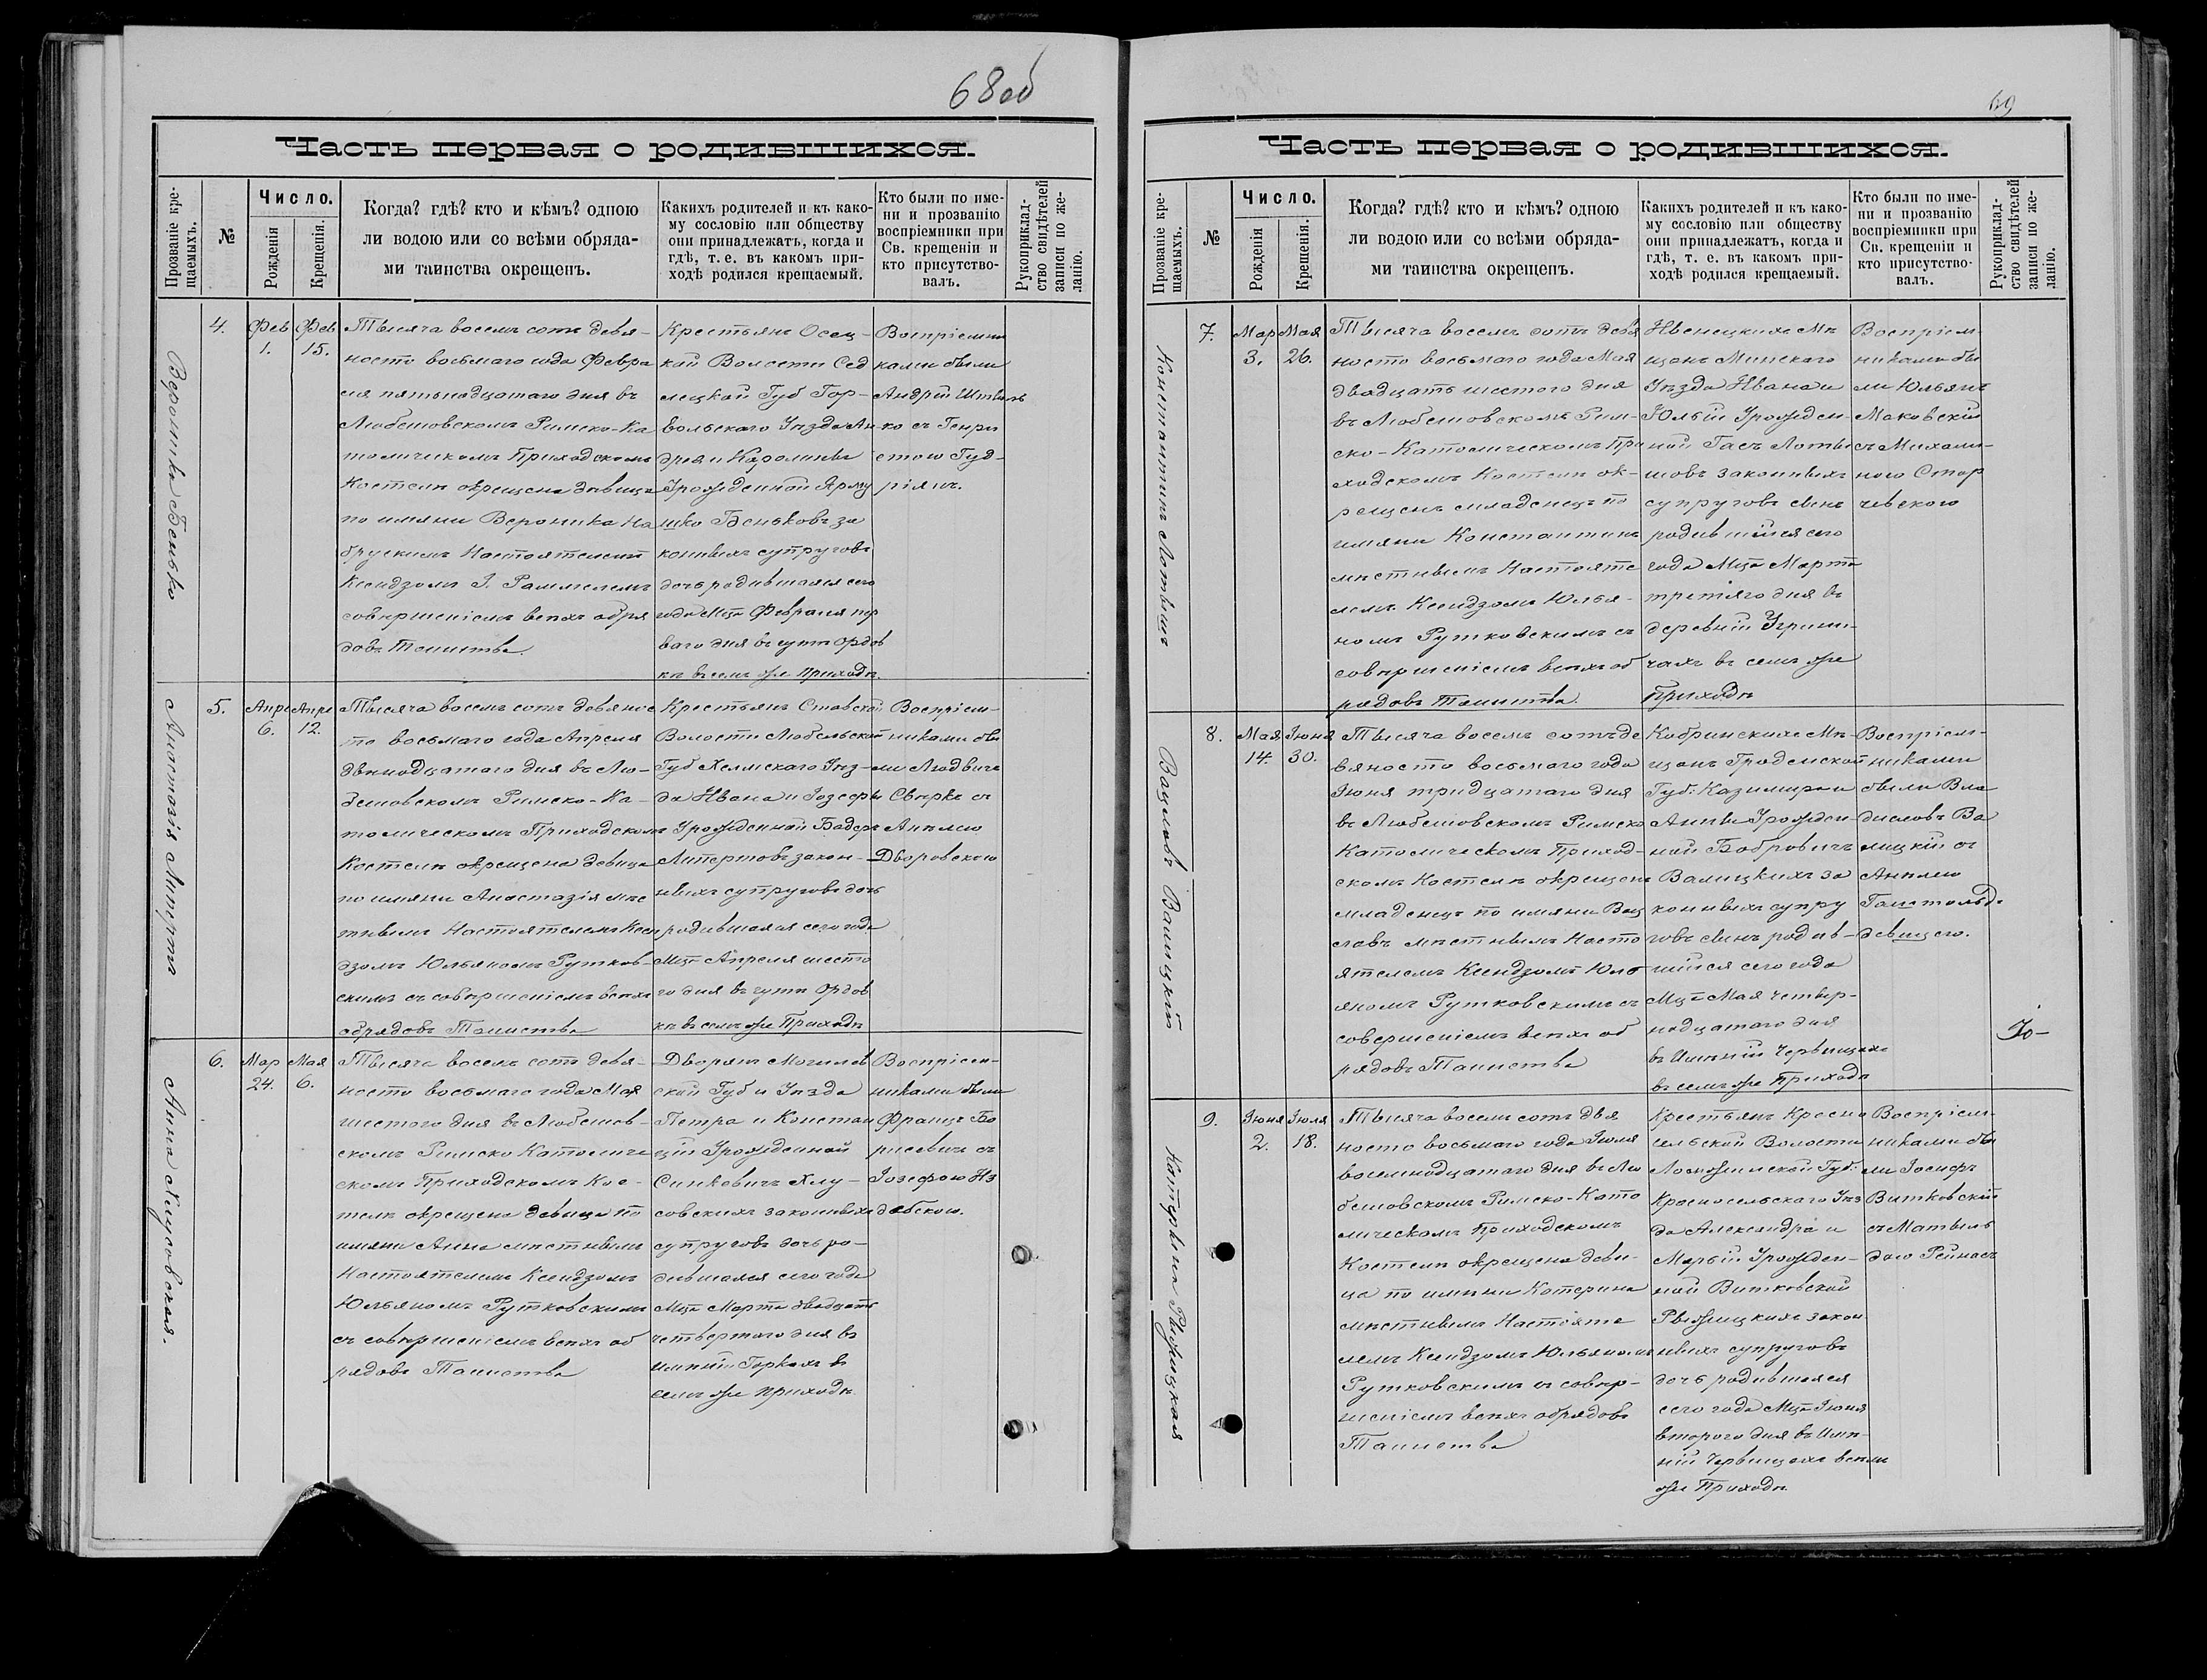 68об
Часть первая о родившихся.
Прозваніе кре-
щаемыхъ.
№
Число.
Рожденія
Крещенія.
Когда? гдѣ? кто и кѣмъ? одною
ли водою или со всѣми обряда-
ми таинства окрещенъ.
Какихъ родителей и къ како-
му сословію или обществу
они принадлежатъ, когда и
гдѣ, т. е. въ какомъ при-
ходѣ родился крещаемый.
Кто были по име-
ни и прозванію
воспріемники при
Св. крещеніи и
кто присутство-
валъ.
Рукоприклад-
ство свидѣтелей
записи по же-
ланію.
Вероника Бенько
4.
Фев
1.
Фев
15.
Тысяча восемь сотъ девя-
носто восьмаго года Февра
ля пятьнадцатаго дня въ
Любешовскомъ Римско-Ка
толическомъ Приходскомъ
Костелѣ окрещена дѣвица
по имяни Вероника
Настоятелемъ
Ксендзомъ І. Раммелемъ
совершеніемъ всѣхъ обря
довъ Таинства.
Крестьянъ Осец-
кой Волости Сед
лецкой Губ Гор-
вольскаго Уѣзда Ан
дрея и Каролины
Урожденной
Беньковъ за
конныхъ супруговъ
дочь родившаяся сего
года Мца Февраля пер
ваго дня въ гутѣ Ордов
кѣ въ семъ же Приходѣ.
Воспріемни
ками были
Андрій
ко съ Генри
етою Гуд-
ріянъ.
Анастазія Липертъ
5.
Апре
6.
Апре
12.
Тысяча восемь сотъ девянос
то восьмаго года Апреля
двѣнадцатаго дня въ Лю-
бешовскомъ Римско-Ка-
толическомъ Приходскомъ
Костелѣ окрещена девица
по имяни Анастазія мѣс
тнымъ Настоятелемъ Ксен
дзомъ Юльяномъ Рутков-
скимъ съ совершеніемъ всѣхъ
обрядовъ Таинства
Крестьянъ Ставской
Волости Любельской
Губ Хелмскаго Уѣз-
да Ивана и Іозефы
Урожденной Бадеръ
Липертовъ закон-
ныхъ супруговъ дочь
родившаяся сего года
Мца Апреля шесто
го дня въ гутѣ Ордов
кѣ въ семъ же Приходѣ
Воспріем-
никами бы
ли Людвигъ
съ
Анѣлею
Дворовскою
Анна Хлусовская.
6.
Мар
24.
Мая
6.
Тысяча восемь сотъ девя-
носто восьмаго года Мая
шестого дня въ Любешов-
скомъ Римско Католиче
скомъ Приходскомъ Кос-
телѣ окрещена девица по
имяни Анна мѣстнымъ
Настоятелемъ Ксендзомъ
Юльяномъ Рутковскимъ
съ совершеніемъ всѣхъ об
рядовъ Таинства
Дворянъ Могилев
ской Губ и Уѣзда
Петра и Констан
ціи Урожденной
Синкевичъ Хлу-
совскихъ законныхъ
супруговъ дочь ро-
дившаяся сего года
Мца Марта двадцать
четвертого дня въ
имѣніи Горкахъ въ
семъ же приходѣ.
Воспріем-
никами были
Францъ Бо
рисевичъ съ
Іозефою Из
дебскою.
69
Часть первая о родившихся.
Прозваніе кре-
щаемыхъ.
№
Число.
Рожденія
Крещенія.
Когда? гдѣ? кто и кѣмъ? одною
ли водою или со всѣми обряда-
ми таинства окрещенъ.
Какихъ родителей и къ како-
му сословію или обществу
они принадлежатъ, когда и
гдѣ, т. е. въ какомъ при-
ходѣ родился крещаемый.
Кто были по име-
ни и прозванію
воспріемники при
Св. крещеніи и
кто присутство-
валъ.
Рукоприклад-
ство свидѣтелей
записи по же-
ланію.
Константинъ Лотышъ
7.
Мар
3.
Мая
26.
Тысяча восемь сотъ девя
носто восьмаго года Мая
двадцать шестого дня
въ Любешовскомъ Рим-
ско-Католическомъ При
ходскомъ Костелѣ ок-
рещенъ младенецъ по
имяни Константинъ
мѣстнымъ Настояте
лемъ Ксендзомъ Юлья-
номъ Рутковскимъ съ
совершеніемъ всѣхъ об
рядовъ Таинства.
Ивенецкихъ Мѣ
щанъ Минскаго
Уѣзда Ивана и
Юліи Урожден-
ной Гасъ Лоты
шовъ законныхъ
супруговъ сынъ
родившійся сего
года Мца Марта
третяго дня въ
деревніи Угрини-
чахъ въ семъ же
Приходѣ
Воспріем-
никами бы
ли Юльянъ
Маковскій
съ Михали-
ною Стар
чевскою
Вацлавъ Валицкій
8.
Мая
14.
Іюня
30.
Тысяча восемь сотъ де
вяносто восьмаго года
Іюня тридцатаго дня
въ Любешовскомъ Римско
Католическомъ Приход-
скомъ Костелѣ окрещенъ
младенецъ по имяни Вац
славъ мѣстнымъ Насто
ятелемъ Ксендзомъ Юль
яномъ Рутковскимъ съ
совершеніемъ всѣхъ об
рядовъ Таинства
Кобринскихъ Мѣ-
щанъ Гродненской
Губ. Казимира и
Анны Урожден-
ной Бобровичъ
Валицкихъ за
конныхъ супру
говъ сынъ родив-
шійся сего года
Мца Мая четыр-
надцатаго дня
въ Имѣніи Червищахъ
въ семъ же Прихода
Воспріем-
никами
были Вла
диславъ Ва
лицкій съ
Анѣлею
девицею.
Катерина Рыжицкая
9.
Іюня
2.
Іюля
18.
Тысяча восемь сотъ двя
носто восьмаго года Іюля
восемнадцатаго дня въ Лю
бешовскомъ Римско-Като
лическомъ Приходскомъ
Костелѣ окрещена деви-
ца по имяни Катерина
мѣстнымъ Настояте
лемъ Ксендзомъ Юльяномъ
Рутковскимъ съ совер-
шеніемъ всѣхъ обрядовъ
Таинства
Крестьянъ Красно
сельской Волости
Ломжинской Губ:
Красносельскаго Уѣз
да Александра и
Маріи Урожден-
ной Витковской
Рыжицкихъ закон
ныхъ супруговъ
дочь родившаяся
сего года Мца Іюня
второго дня въ Имѣ-
ніи Червищахъ в семъ
же Приходѣ
Воспріем-
никами бы
ли Іосифъ
Витковскій
съ Матыль
дою Рейнасъ